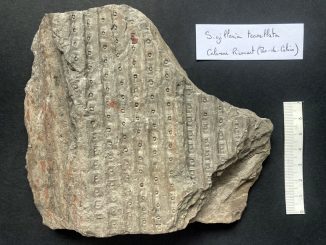 Sigillaria tessellata
Calonne Ricouart (Pas-de-Calais)